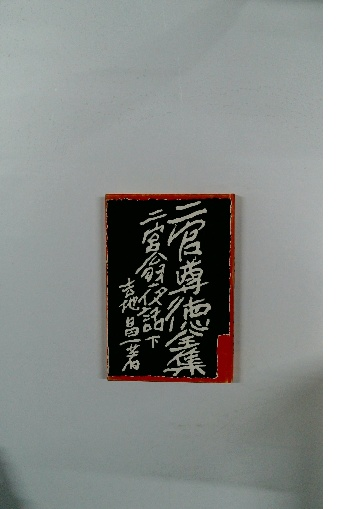 二宮尊徳全集
二宮翁夜話下
吉地昌一著